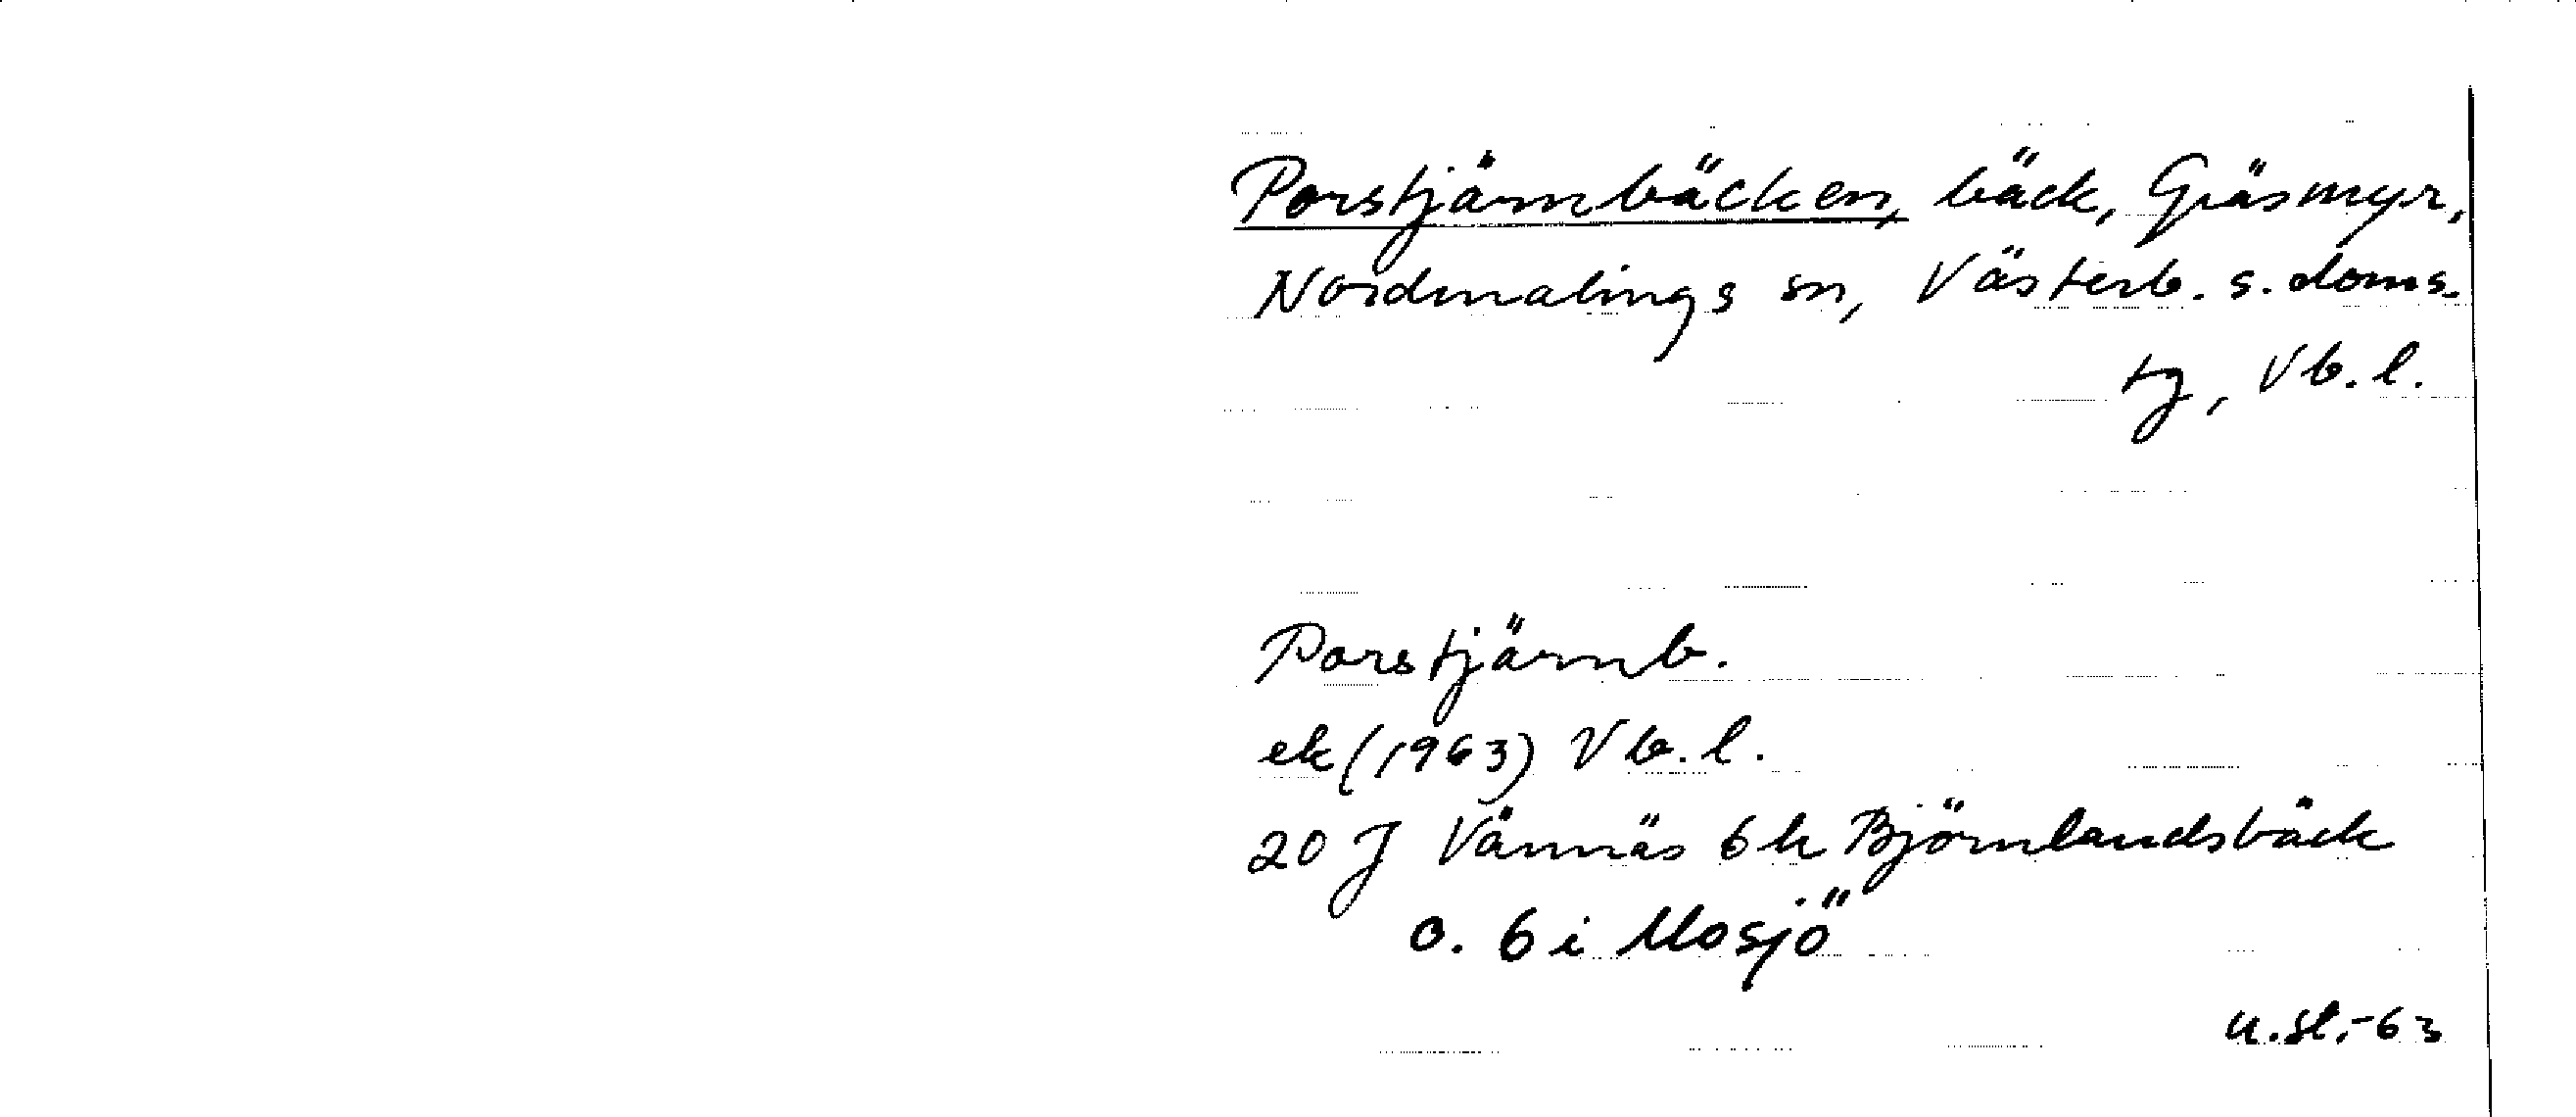 Porstjärnbäcken, bäck, Gräsmyr,
Nordmalings sn, Västerb. s. doms.
tg, Vb. l.
Porstjärnb.
ek (1963) Vb. l.
20 J Vännäs 6 h Björnlandsbäck
o. 6 i Mosjö
u.st.-63